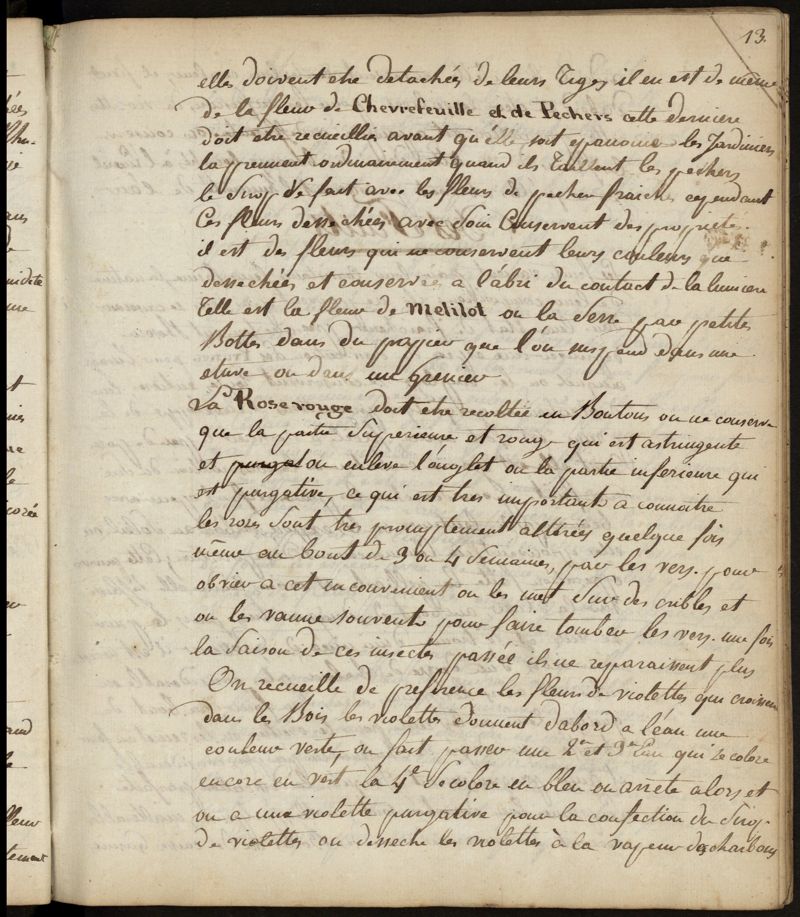 13.
elles doivent etre detachées de leurs Tiges il en est de même
de la fleur de Chevrefeuille et de Pechers cette derniere
doit etre recueillie avant qu'elle soit epanouie les Jardiniers
la prennent ordinairement quand ils Taillent les pechers
le Sirop se fait avec les fleurs de pecher fraiches cependant
Ces fleurs dessechées avec Soin Conservent des proprietés.
il est des fleurs qui ne conservent leurs couleurs que
dessechées et conservées a l'abri du contact de la lumiere
Telle est la fleur de Melilot on la Serre par petites
Bottes dans du papier que l'on suspend dans une
etuve ou dans un Grenier
La Rose rouge doit etre recoltée en Boutons on ne conserve
que la partie Superieure et rouge qui est astringente
et purgat on enleve l'onglet ou la partie inferieure qui
est purgative, ce qui est tres important a connaitre
les roses Sont tres promptement altérées quelque fois
même au bout de 3 ou 4 Semaines, par les vers. pour
obvier a cet inconvenient on les met Sur des cribles et
on les vanne souvent pour faire tomber les vers. une fois
la Saison de ces insectes passée ils ne reparaissent plus
On recueille de preference les fleurs de violettes qui croissent
dans les Bois les violettes donnent d'abord a l'eau une
couleur verte, on fait passer une 2e et 3e Eau qui se colore
encore en vert la 4e Se colore en bleu on arrête alors et
on a une violette purgative pour la confection du Sirop
de violettes on desseche les violettes à la vapeur des charbons